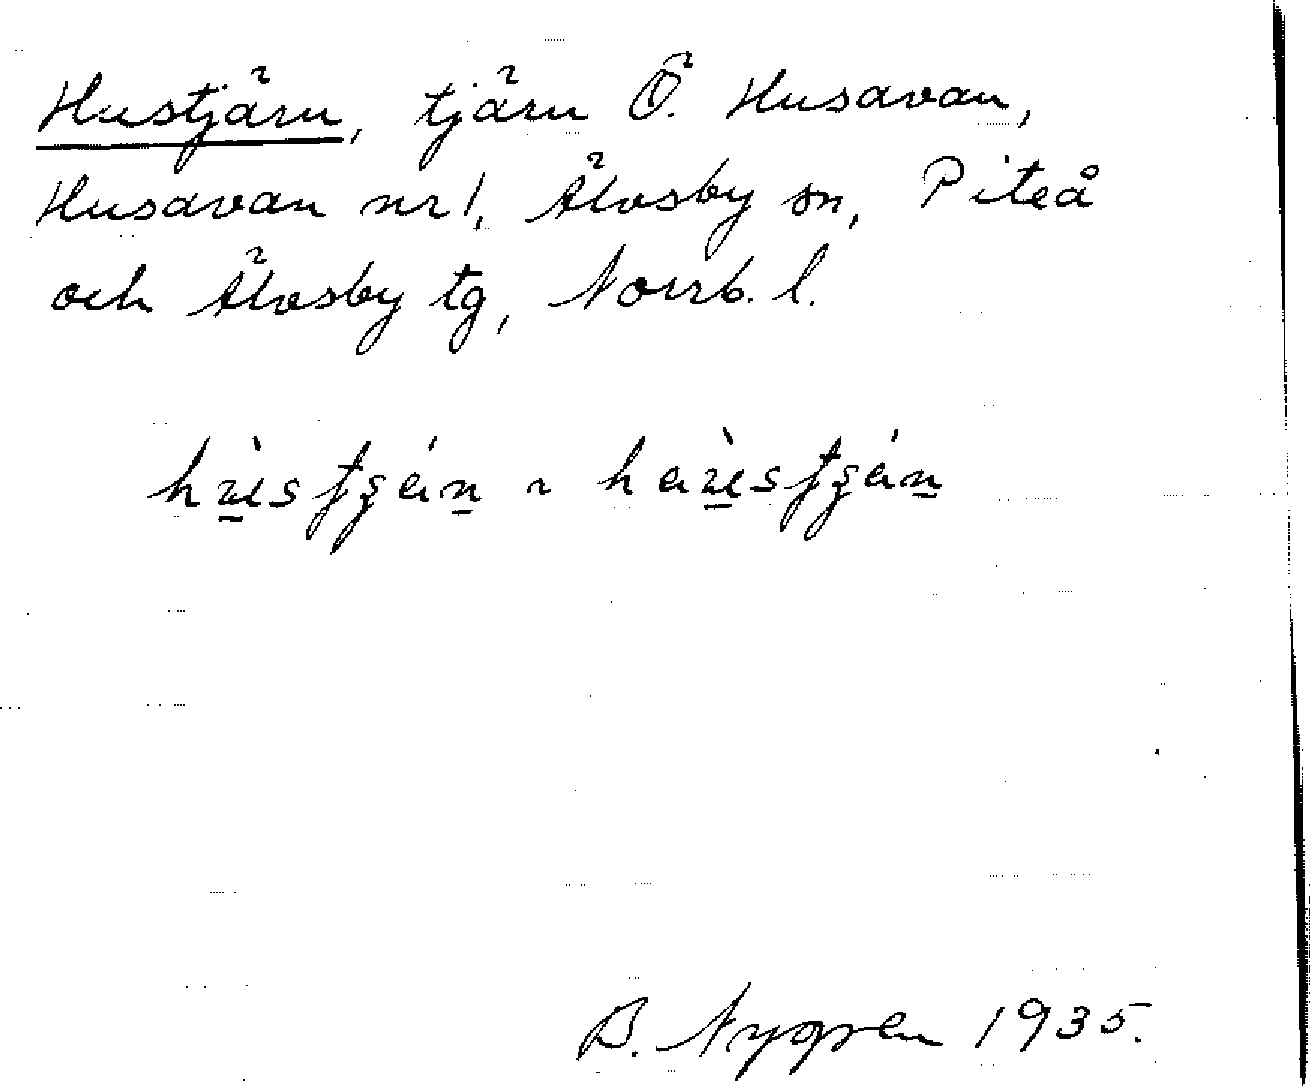 Hustjärn, tjärn Ö. Husavan,
Husavan nr 1, Älvsby sn, Piteå
och Älvsby tg, Norrb. l.
B. Nygren 1935.